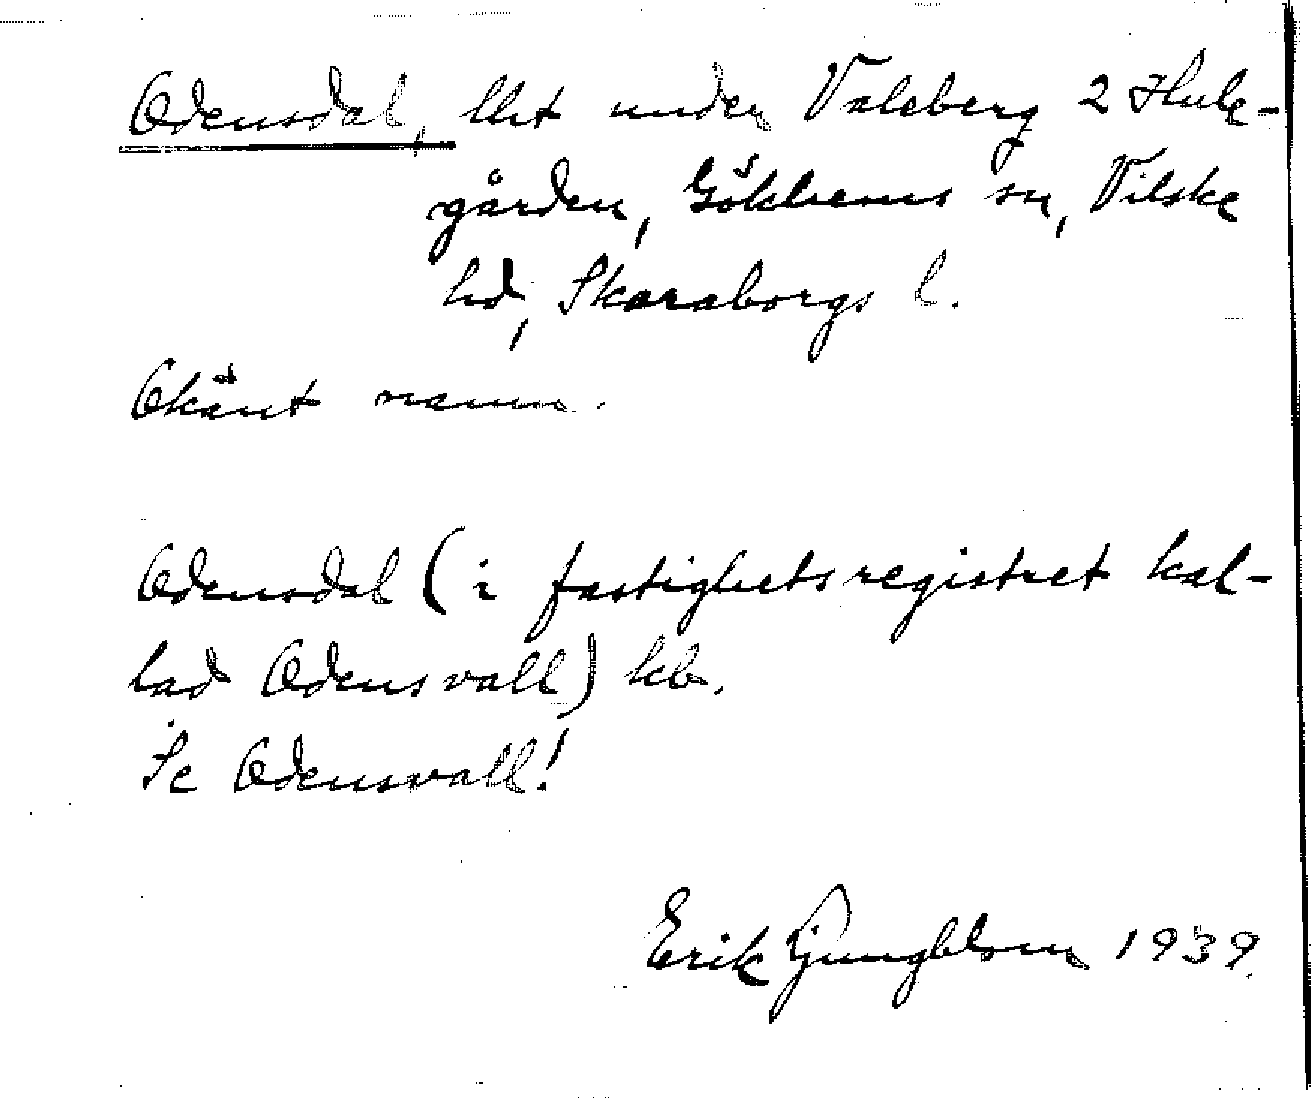 Odensdal, lht under Valeberg 2 Hule-
gården, Gökhems sn, Vilske
hd, Skaraborgs l.
Okänt namn.
Odensdal (i fastighetsregistret kal-
lad Odensvall) kb.
Se Odensvall!
Erik Ljungblom 1939.